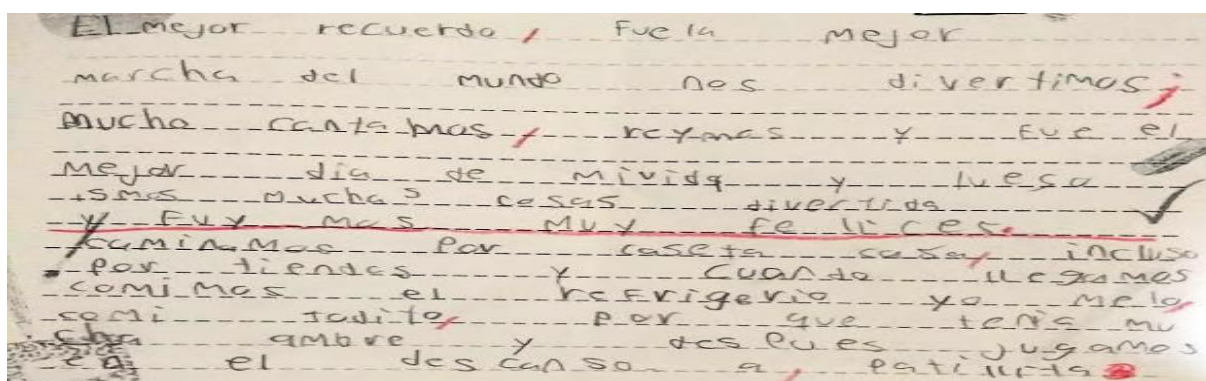 El mejor recuerdo, fue la mejor
marcha del mundo nos divertimos;
mucho cantamos, reymos y fue el
mejor dia de mi vida y luego
ismos muchas cosas divertida
y fuy mos muy felices.
caminamos por caseta casa, incluso
por tiendas y cuando llegamos
comimos el refrigerio yo me lo,
comi todito, por que tenia mu
cha ambre y despues jugamos
en el descanso a,